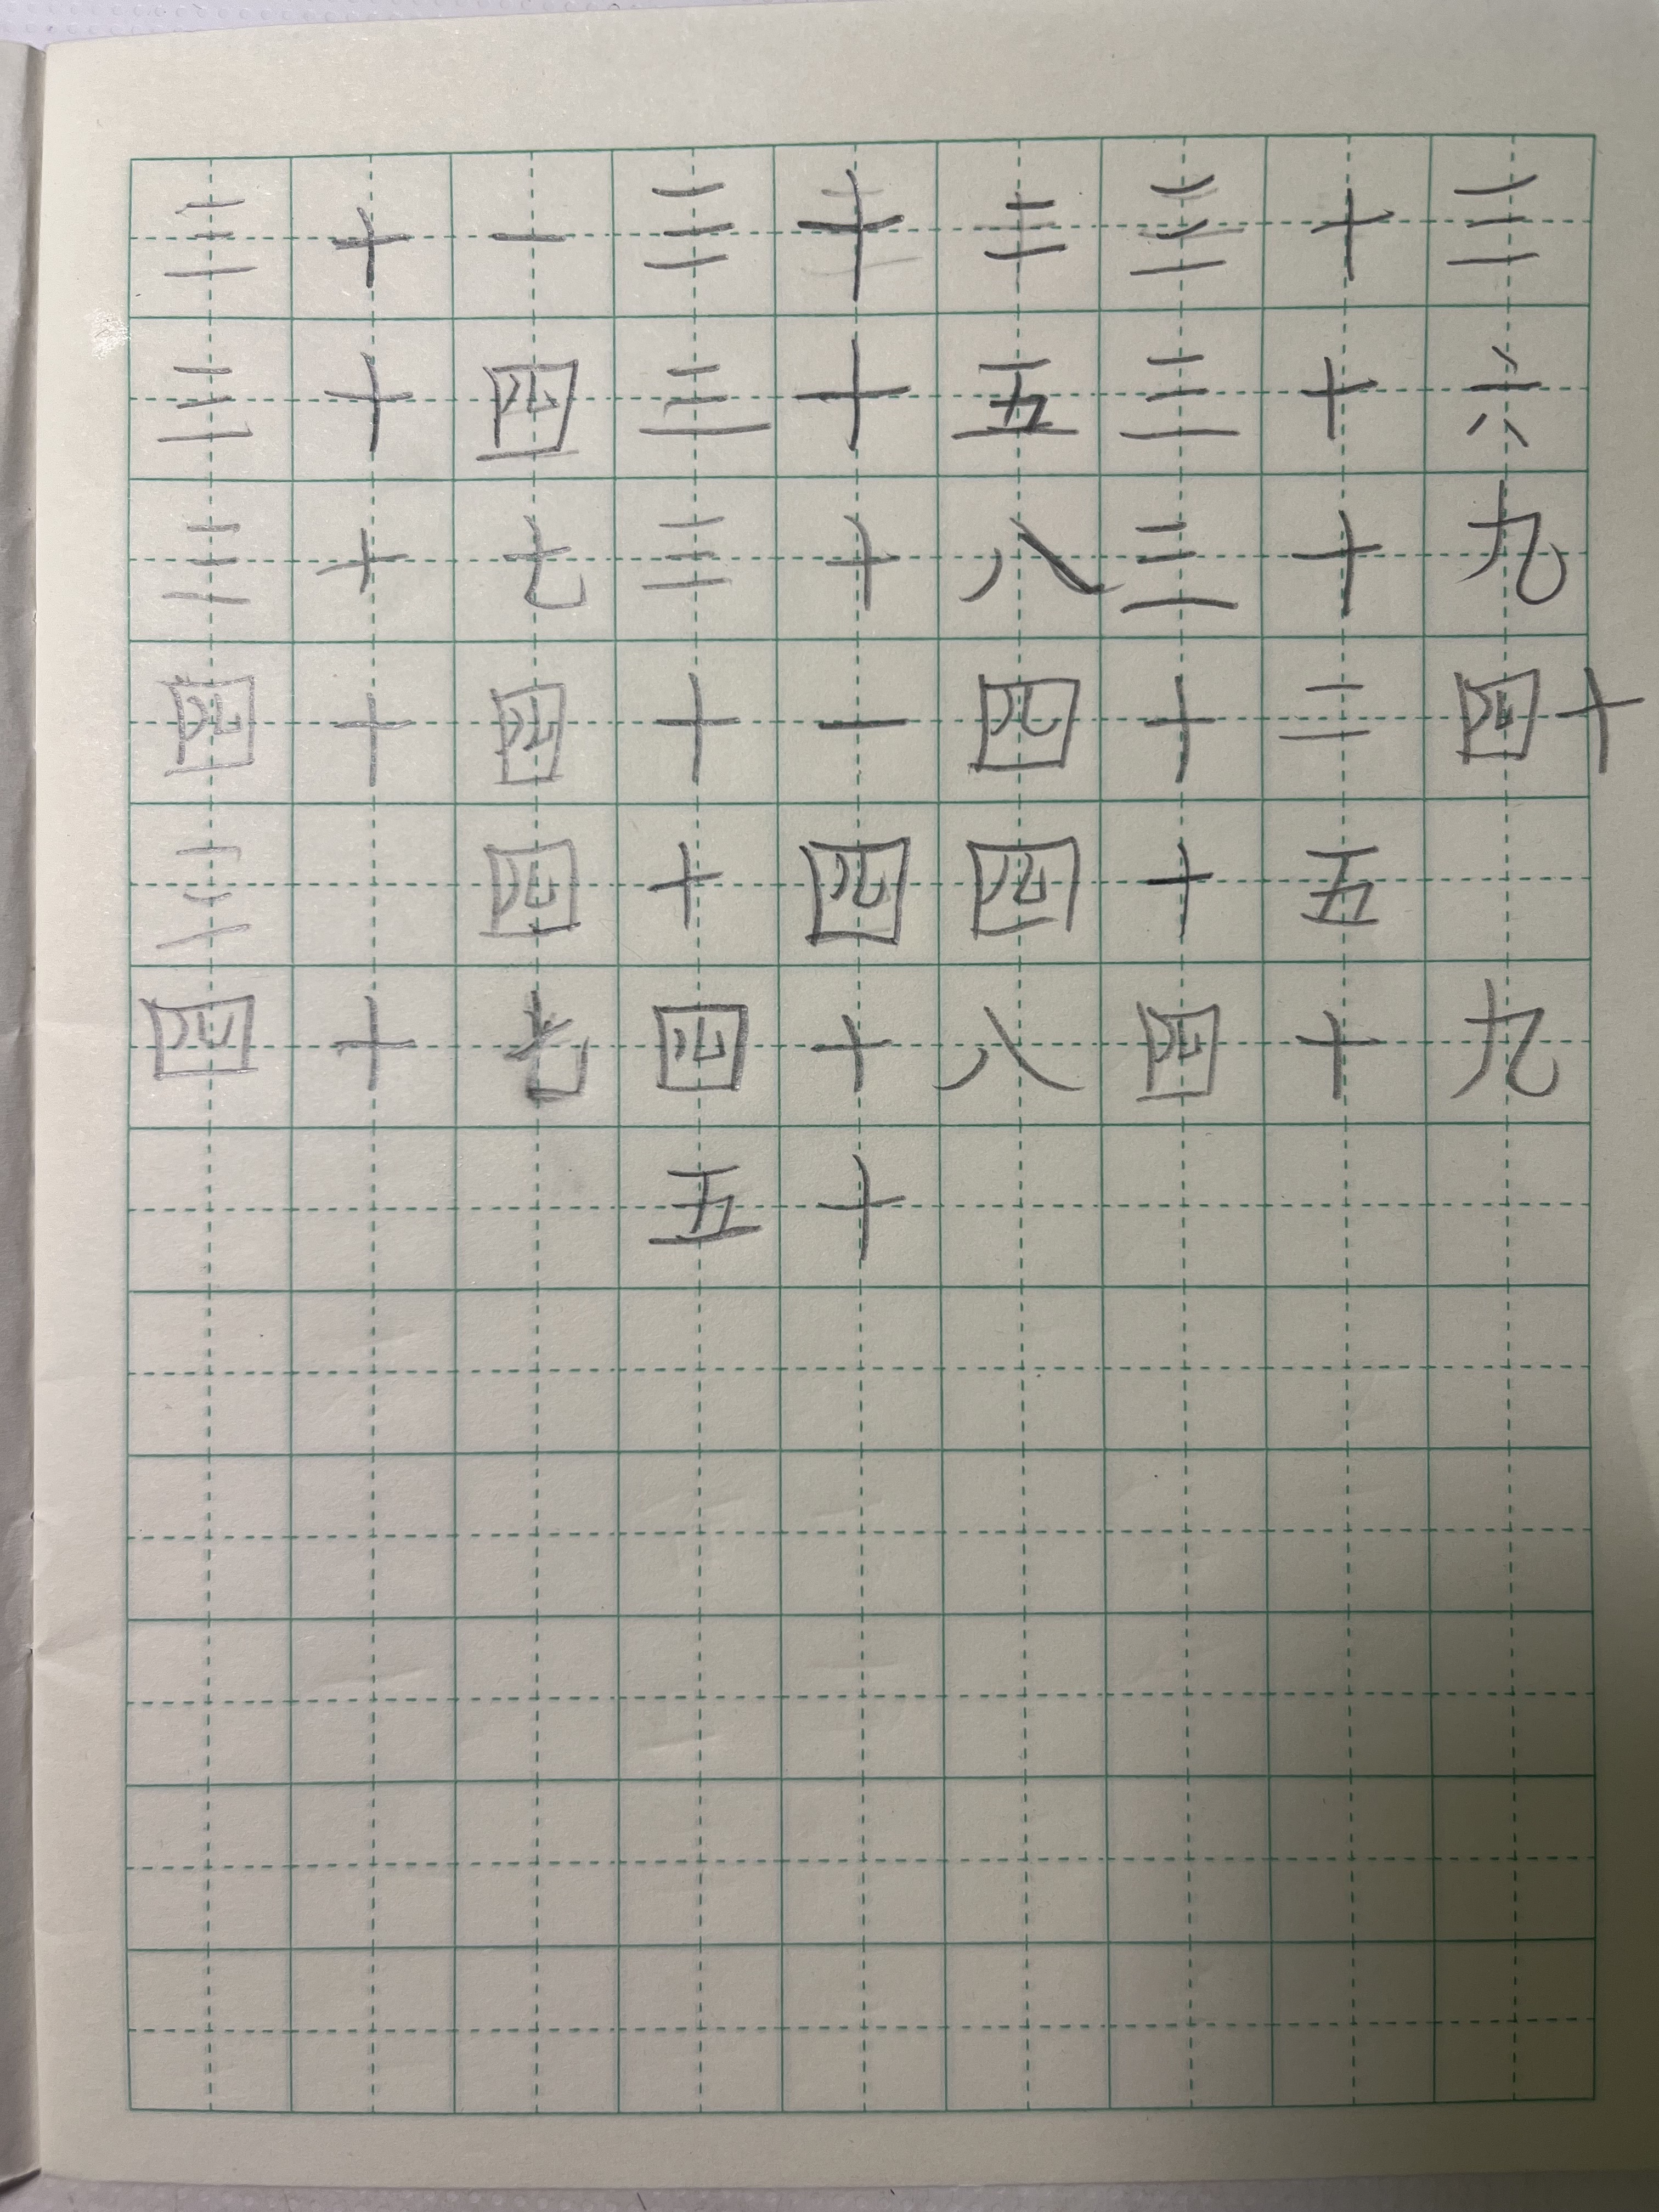 三十一三十二三十三
三十四三十五三十六
三十七三十八三十九
四十四十一四十二四十
三四十四四十五
四十七四十八四十九
五十